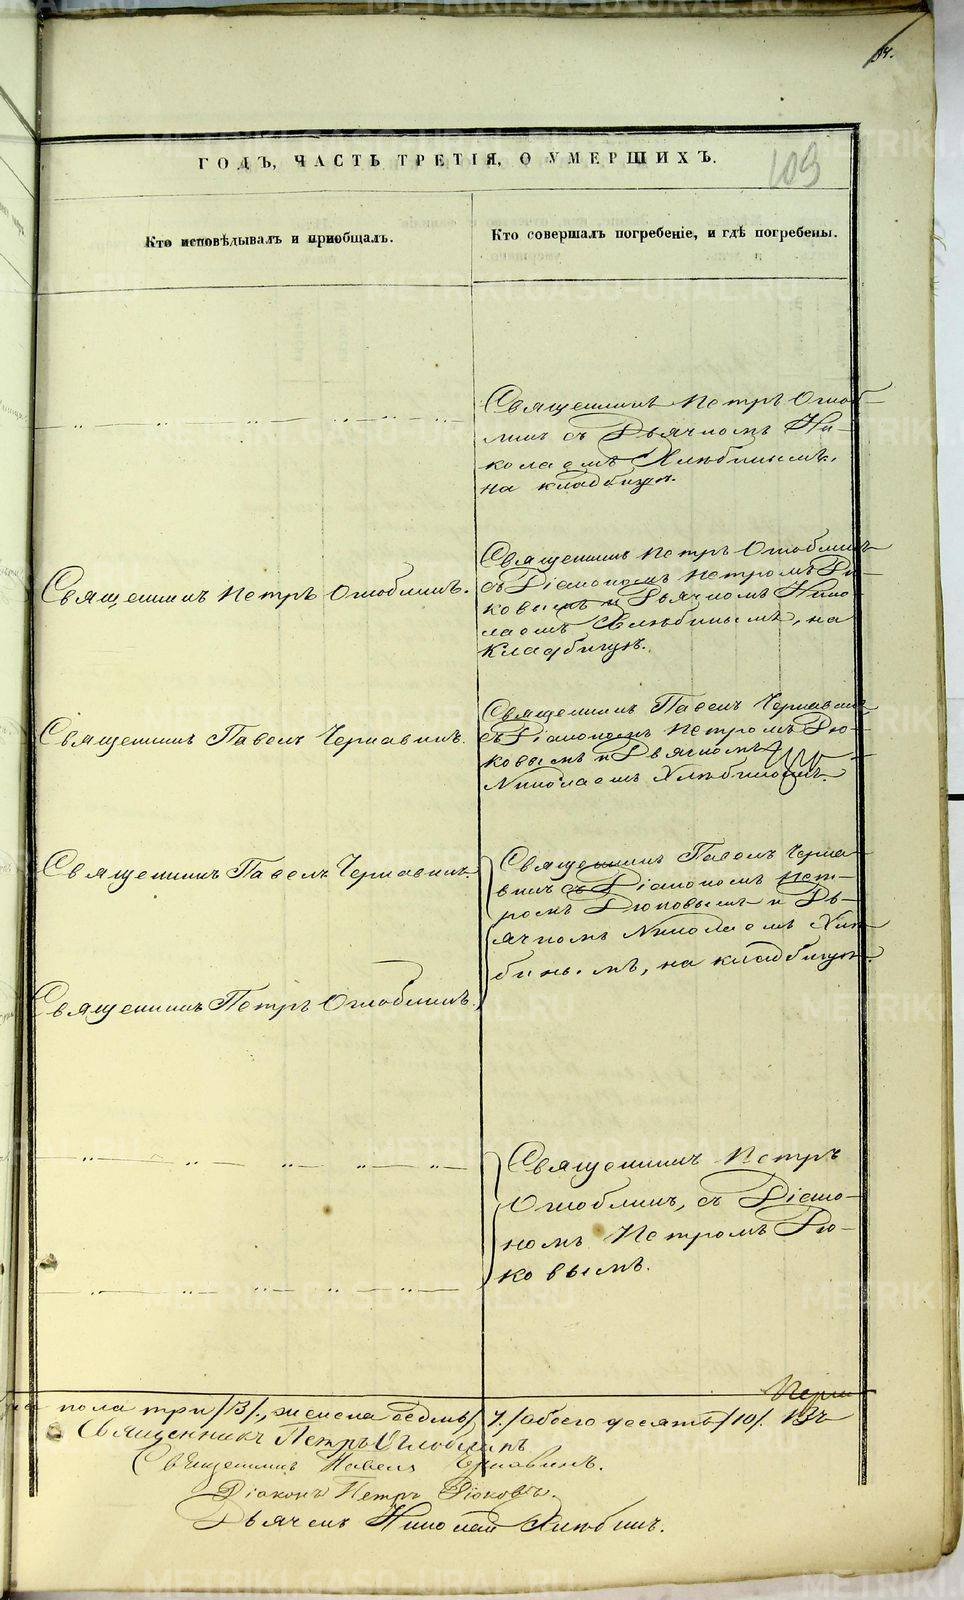 ГОДЪ, ЧАСТЬ ТРЕТІЯ, О УМЕРШИХЪ.
109
Кто исповѣдывалъ и приобщалъ.
Кто совершалъ погребеніе, и гдѣ погребены.
Священникъ Петръ Оглоб-
линъ съ Дьячкомъ Ни-
колаемъ Хлѣбинымъ,
на кладбищѣ.
Священникъ Петръ Оглоблинъ.
Священникъ Петръ Оглоблинъ
съ Діакономъ Петромъ Дю-
ковымъ и Дьячкомъ Нико-
лаемъ Хлѣбинымъ, на
кладбищѣ.
Священникъ Павелъ Чернавинъ.
Священникъ Павелъ Чернавинъ
съ Діакономъ Петромъ Дю-
ковымъ и Дьячкомъ
Николаемъ Хлѣбинымъ.
Священникъ Павелъ Чернавинъ.
Священникъ Павелъ Черна-
винъ съ Діакономъ Пет-
ромъ Дюковымъ и Дь-
ячкомъ Николаемъ Хлѣ-
бинымъ, на кладбищѣ.
Священникъ Петръ Оглоблинъ.
Священникъ Петръ
Оглоблинъ, съ Діако-
номъ Петромъ Дю-
ковымъ.
пола три /3/, женска седмь /7/ обоего десять /10/.
Священникъ Петръ Оглоблинъ
Священникъ Павелъ Чернавинъ.
Діаконъ Петръ Дюковъ.
Дьячекъ Николай Хлѣбинъ.
METRIKI.GASO-URAL.RU